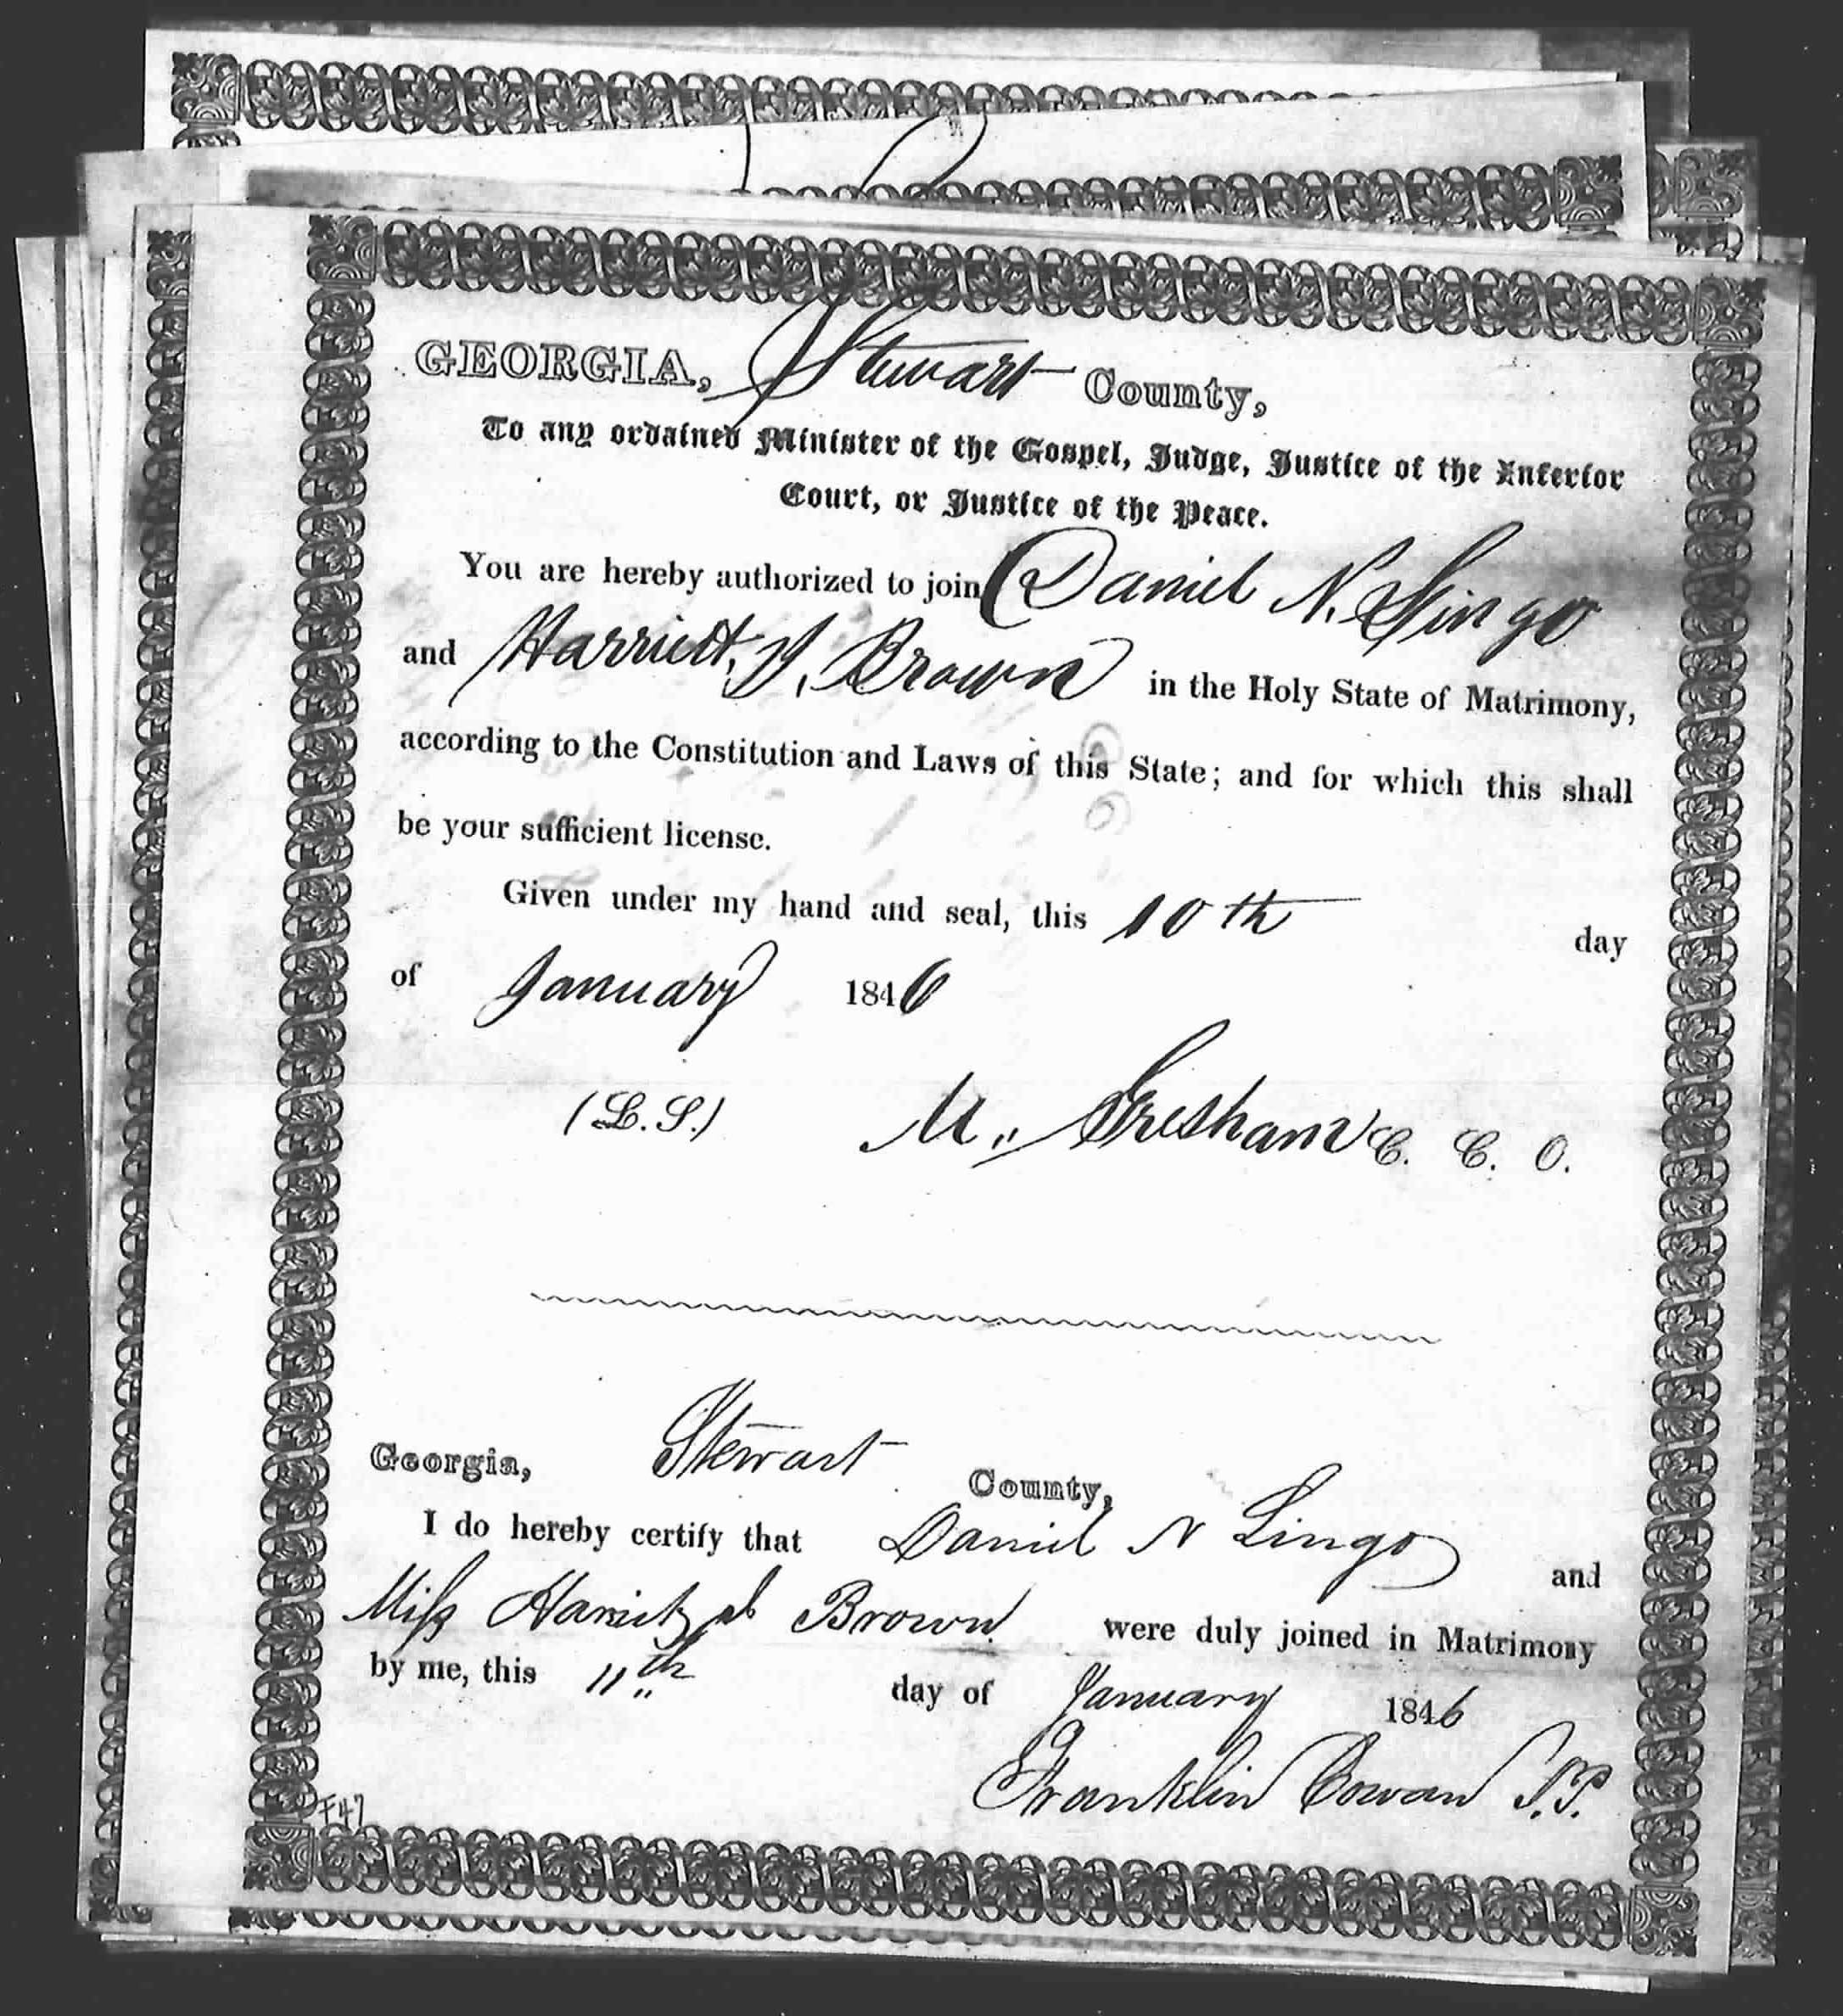 GEORGIA, Stewart County,
To any ordained Minister of the Gospel, Judge, Justice of the Inferior
Court, or Justice of the Peace.
You are hereby authorized to join Daniel N. Lingo
and Harriett. Brown in the Holy State of Matrimony,
according to the Constitution and Laws of this State; and for which this shall
be your sufficient license.
Given under my hand and seal, this 10th day
of January 1846
(L. S.) M. Gresham C. C. O.
Georgia, Stewart County,
I do hereby certify that Daniel N Lingo and
Miss Brown were duly joined in Matrimony
by me, this 11th day of January 1846
Franklin Cowan J.P.
F47